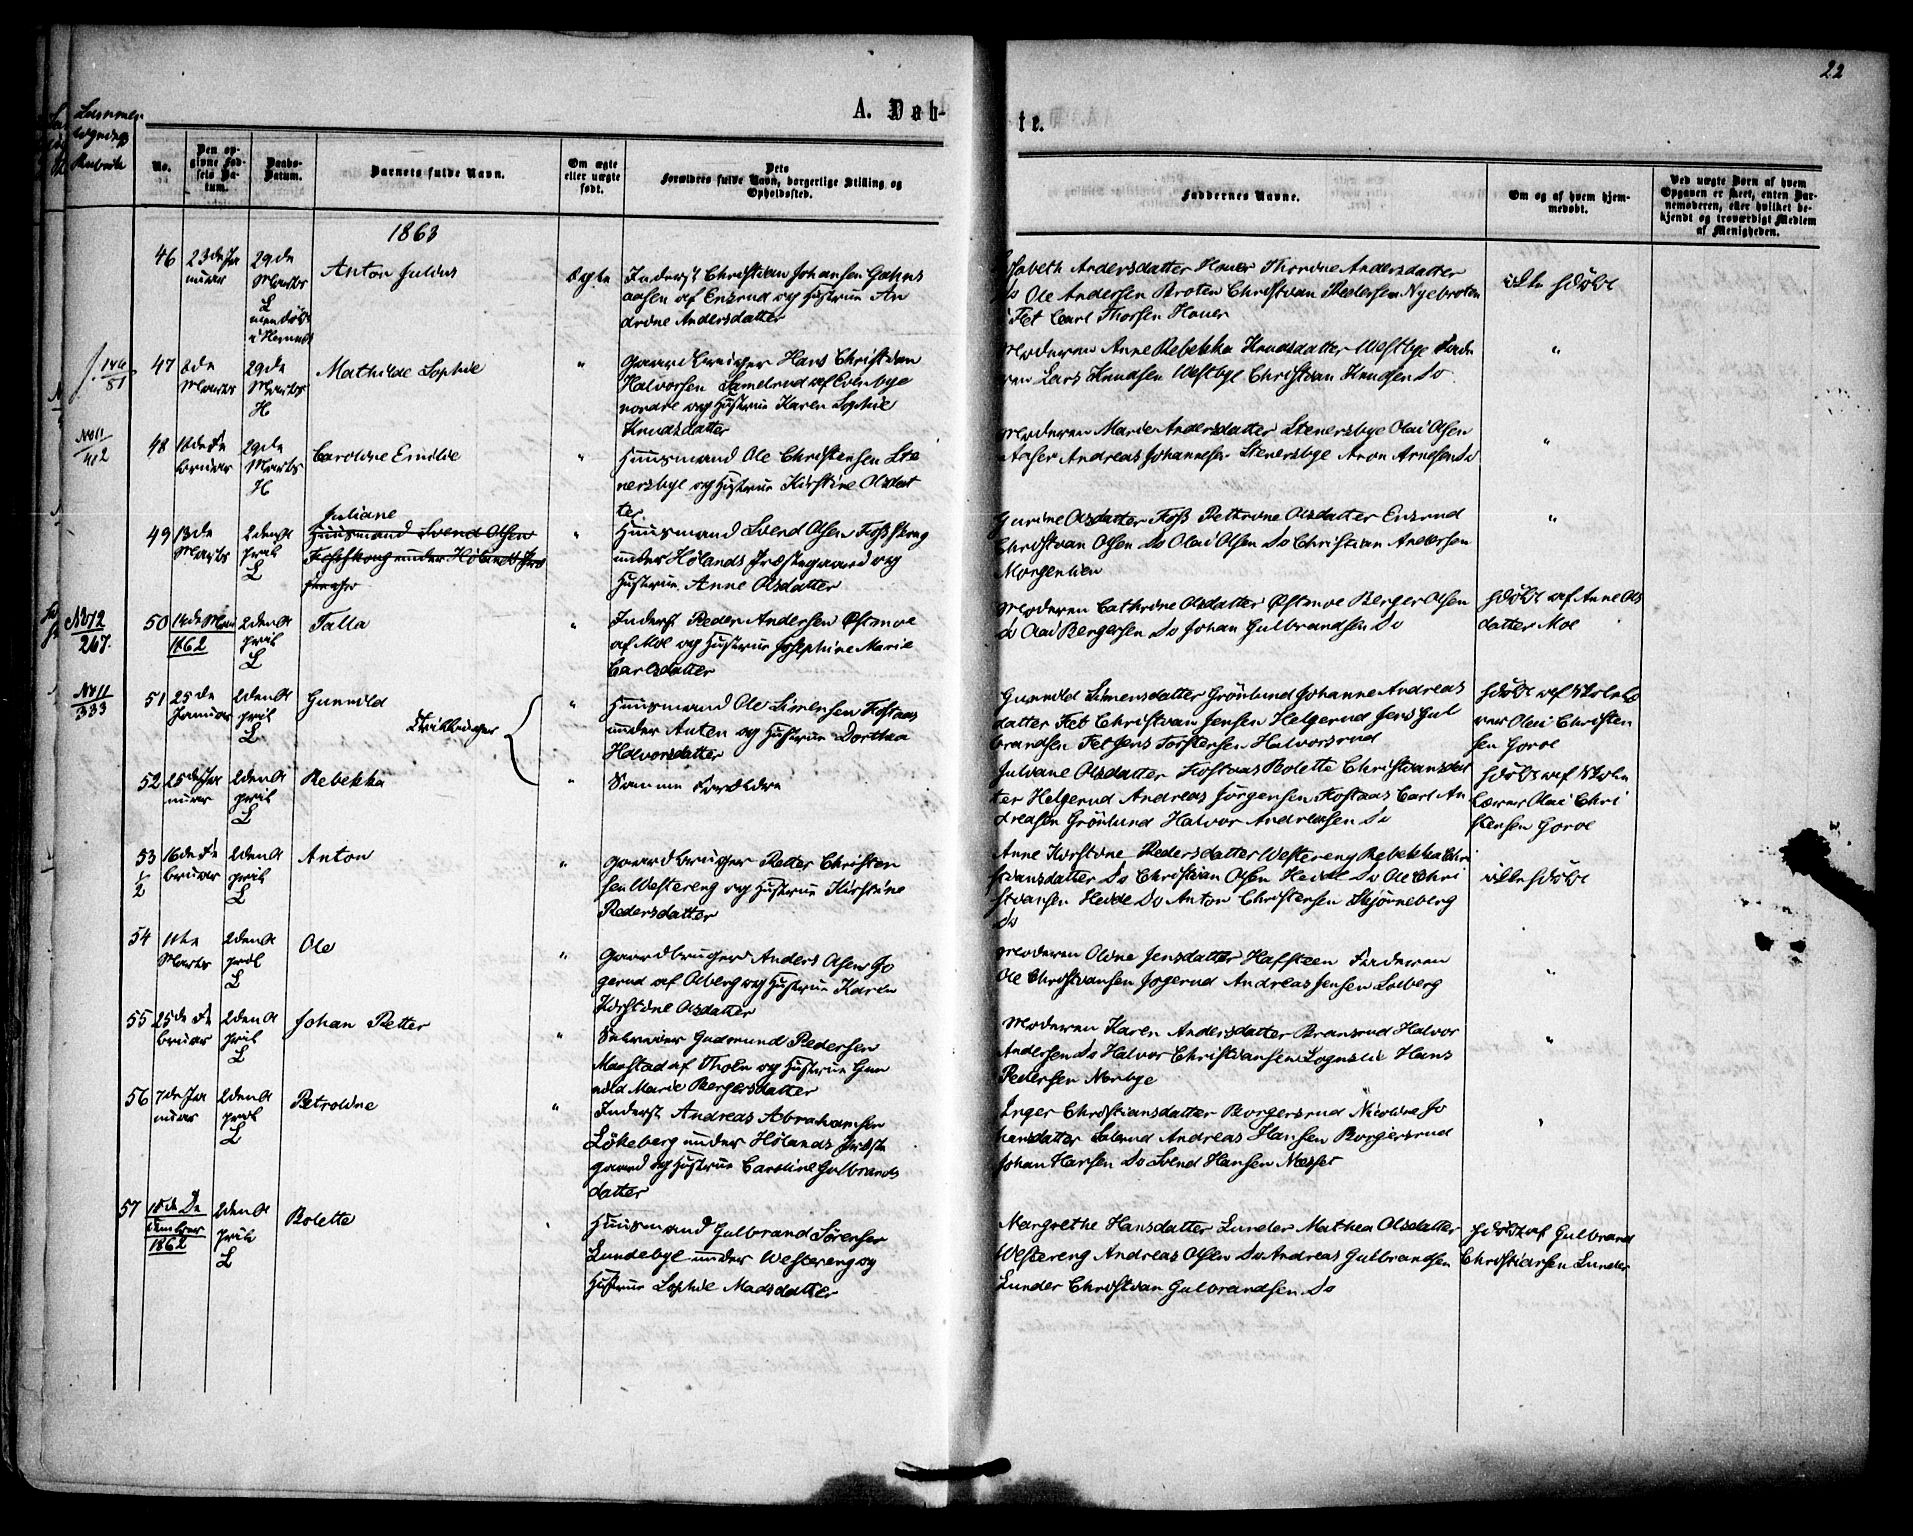 22
A. Døb-
te.
Sammen
tegnings
Rubrik
No.
Den op-
givne Fød-
sels Da-
tum.
Daabs-
Datum.
Barnets fulde Navn.
Om ægte
eller uægte
født.
Dets
Forældres fulde Navn, borgerlige Stilling og
Opholdssted.
Faddernes Navne.
Om og af hvem hjem-
medøbt.
Ved uægte Børn af hvem
Opgaven er skeet, enten Bar-
nemoderen, eller hvilket be-
kjendt og troværdigt Medlem
af Menigheden.
1863
46
23de Ja
nuar
29de
Marts
L
Anton Julius
Ægte
Inderst Christian Johansen
aasen af Enerud og Hustrue An
drine Andersdatter
Andersdatter Houer Thorine Andersdatter
Do Ole Andersen Broten Christian Pedersen Nyebroten
Fet Carl Thorsen Houer
ikke hdøbt
146
81
47
8de
Marts
29de
Marts
H
Mathilde Sophie
"
Gaardbruger Hans Christian
Halvorsen Lamelrud af Evenbye
nordre og Hustrue Karen Sophie
Knudsdatter
Moderen Anne Rebekka Knudsdatter Westbye Fade
ren Lars Knudsen Westbye Christian Knudsen Do
"
No 11
412
48
Fe
bruar
29de
Marts
H
Caroline Emilie
"
Huusmand Ole Christensen Ste
nersbye og Hustrue Kirstine Olsdat
ter
Moderen Marie Andersdatter Stenersbye Olai Olsen
Andreas Johannesen Stenersbye Aron Arnesen Do
"
49
13de
Marts
2den A
pril
L
Juliane
Huusmand Svend Olsen
Fossskoug under Hølands Præ
"
Huusmand Svend Olsen Fossskoug
under Hølands Præstegaard og
Hustrue Anne Olsdatter
Gurine Olsdatter Foss Pethrine Olsdatter Enerud
Christian Olsen Do Olai Olsen Do Christian Andersen
Morgenlien
"
No 12
267.
50
14de Mai
1862
2den A
pril
L
Talla
"
Inderst Peder Andersen Østmoe
af Moe og Hustrue Josephine Marie
Carlsdatter
Moderen Cathrine Olsdatter Østmoe Berger Olsen
Do Olai Bergersen Do Johan Gulbrandsen Do
hdøbt af Anne Ols
datter Moe
No 11
333
51
25de
Januar
2den A
pril
L
Gunnild
Tvillinger
"
Huusmand Ole Simensen Fostaas
under Auten og Hustrue Dorthea
Halvorsdatter
Gunnild Simensdatter Grønlund Johanne Andreas
datter Fet Christian Jensen Helgerud Jens Gul
brandsen Fet Jens Torstensen Halvorsrud
hdøbt af Skolelæ
rer Olai Christen
sen Goroe
52
25de Ja
nuar
2den A
pril
L
Rebekka
"
Samme Forældre
Juliane Olsdatter Fostaas Bolette Christiansdat
ter Helgerud Andreas Jørgensen Fostaas Carl An
dreasen Grønlund Halvor Andreasen Do
hdøbt af Skole
lærer Olai Chri
stensen Goroe
53
1
2
16de Fe
bruar
2den A
pril
L
Anton
"
Gaardbruger Petter Christen
sen Westereng og Hustrue Kirstine
Pedersdatter
Anne Kirstine Pedersdatter Westereng Rebekka Chri
stiansdatter Do Christian Olsen Hevde Do Ole Chri
stiansen Hevde Do Anton Christensen Skjønneberg
Do
ikke hdøbt
54
11te
Marts
2den A
pril
L
Ole
"
Gaardbruger Anders Olsen Jo
gerud af Olberg og Hustrue Karen
Kirstine Olsdatter
Moderen Oline Jensdatter Hafsteen Faderen
Ole Christiansen Jogerud Andreas Jensen Solberg
"
55
25de Fe
bruar
2den A
pril
L
Johan Petter
"
Selveier Gudmund Pedersen
Maastad af Tholn og Hustrue Gun
nild Marie Bergersdatter
Moderen Karen Andersdatter Bransrud Halvor
Andersen Do Halvor Christiansen Sognslie Hans
Pedersen Norbye
"
56
7de Ja
nuar
2den A
pril
L
Petroline
"
Inderst Andreas Abrahamsen
Løkeberg under Hølands Præste
gaard og Hustrue Caroline Gulbrands
datter
Inger Christiansdatter Borgersrud Nicoline Jo
hansdatter Andreas Hansen Borgersrud
Johan Hansen Do Svend Hansen
"
57
18de De
cember
1862
2den A
pril
L
Bolette
"
Huusmand Gulbrand Sørensen
Lundebye under Westereng og
Hustrue Sophie Madsdatter
Margrethe Hansdatter Lunder Mathea Olsdatter
Westereng Andreas Olsen Do Andreas Gulbrandsen
Lunder Christian Gulbrandsen Do
hdøbt af Gulbrand
Christiansen Lunder